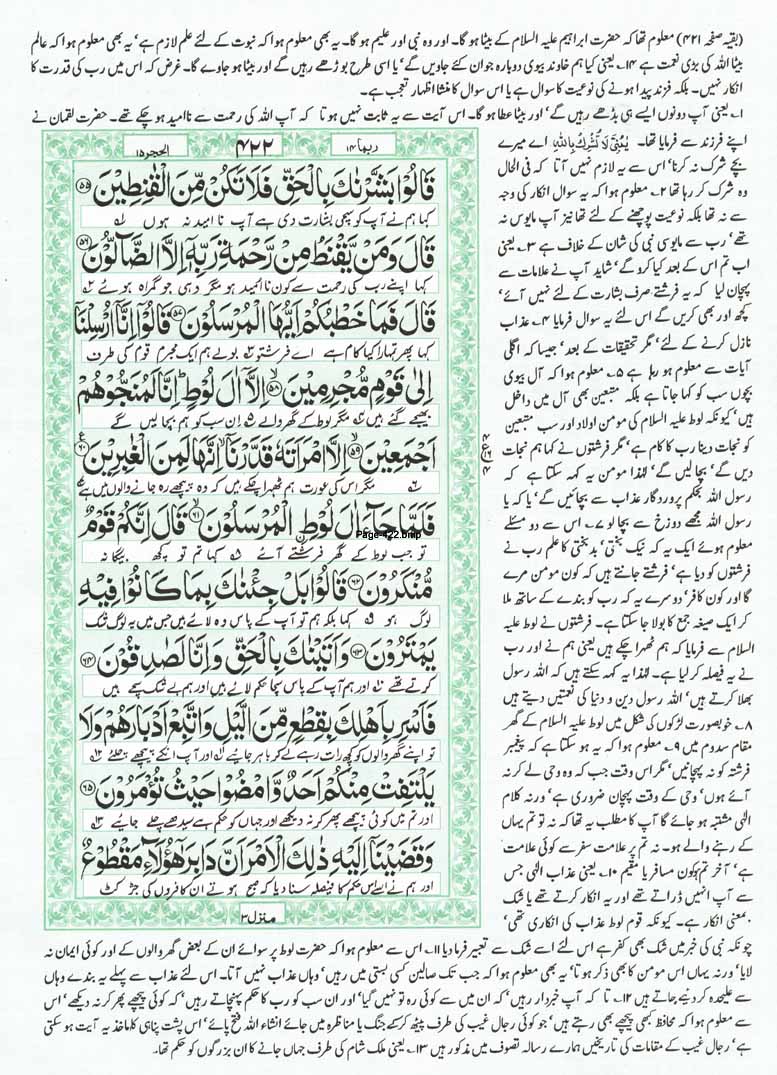 (بقیہ صفحہ ۴۲۱) معلوم تھا کہ حضرت ابراہیم علیہ السلام کے بیٹا ہو گا۔ اور وہ نبی اور علیم ہو گا۔ یہ بھی معلوم ہوا کہ نبوت کے لئے علم لازم ہے' یہ بھی معلوم ہوا کہ عالم
بیٹا اللہ کی بڑی نعمت ہے ۱۴۔ یعنی کیا ہم خاوند بیوی دوبارہ جوان کئے جاویں گے' یا اسی طرح بوڑھے رہیں گے اور بیٹا ہو جاوے گا۔ غرض کہ اس میں رب کی قدرت کا
انکار نہیں۔ بلکہ فرزند پیدا ہونے کی نوعیت کا سوال ہے یا اس سوال کا منشا اظہار تعجب ہے۔
۱۔ یعنی آپ دونوں ایسے ہی بڈھے رہیں گے' اور بیٹا عطا ہو گا۔ اس آیت سے یہ ثابت نہیں ہوتا کہ آپ اللہ کی رحمت سے ناامید ہو چکے تھے۔ حضرت لقمان نے
اپنے فرزند سے فرمایا تھا۔ یٰبُنَیَّ لَا تُشْرِكْ بِاللّٰهِ اے میرے
بچے شرک نہ کرنا' اس سے یہ لازم نہیں آتا کہ فی الحال
وہ شرک کر رہا تھا ۲۔ معلوم ہوا کہ یہ سوال انکار کی وجہ
سے نہ تھا بلکہ نوعیت پوچھنے کے لئے تھا نیز آپ مایوس نہ
تھے' رب سے مایوسی نبی کی شان کے خلاف ہے ۳۔ یعنی
اب تم اس کے بعد کیا کرو گے' شاید آپ نے علامات سے
پہچان لیا کہ یہ فرشتے صرف بشارت کے لئے نہیں آئے'
کچھ اور بھی کریں گے اس لئے یہ سوال فرمایا ۴۔ عذاب
نازل کرنے کے لئے' مگر تحقیقات کے بعد' جیسا کہ اگلی
آیات سے معلوم ہو رہا ہے ۵۔ معلوم ہوا کہ آل بیوی
بچوں سب کو کہا جاتا ہے بلکہ متبعین بھی آل میں داخل
ہیں' کیونکہ لوط علیہ السلام کی مومن اولاد اور سب متبعین
کو نجات دینا رب کا کام ہے' مگر فرشتوں نے کہا ہم نجات
دیں گے' بچا لیں گے' لہٰذا مومن یہ کہہ سکتا ہے کہ
رسول اللہ بحکم پروردگار عذاب سے بچائیں گے' یا کہ یا
رسول اللہ مجھے دوزخ سے بچا لو ۷۔ اس سے دو مسئلے
معلوم ہوئے ایک یہ کہ نیک بختی' بدبختی کا علم رب نے
فرشتوں کو دیا ہے' فرشتے جانتے ہیں کہ کون مومن مرے
گا اور کون کافر' دوسرے یہ کہ رب کو بندے کے ساتھ ملا
کر ایک صیغہ جمع کا بولا جا سکتا ہے۔ فرشتوں نے لوط علیہ
السلام سے فرمایا کہ ہم ٹھہرا چکے ہیں یعنی ہم نے اور رب
نے یہ فیصلہ کر لیا ہے۔ لہٰذا یہ کہہ سکتے ہیں کہ اللہ رسول
بھلا کرتے ہیں' اللہ رسول دین و دنیا کی نعمتیں دیتے ہیں
۸۔ خوبصورت لڑکوں کی شکل میں لوط علیہ السلام کے گھر
مقام سدوم میں ۹۔ معلوم ہوا کہ یہ ہو سکتا ہے کہ پیغمبر
فرشتہ کو نہ پہچانیں' مگر اس وقت جب کہ وہ وحی لے کر نہ
آئے ہوں' وحی کے وقت پہچان ضروری ہے' ورنہ کلام
الٰہی مشتبہ ہو جائے گا آپ کا مطلب یہ تھا کہ نہ تو تم یہاں
کے رہنے والے ہو۔ نہ تم پر علامت سفر سے کوئی علامت
ہے' آخر تم کون مسافر یا مقیم ۱۰۔ یعنی عذاب الٰہی جس
سے آپ انہیں ڈراتے تھے اور یہ انکار کرتے تھے یا شک
بمعنی انکار ہے۔ کیونکہ قوم لوط عذاب کی انکاری تھی'
ربما ۱۴
۴۲۲
الحجر ۱۵
قَالُوْا بَشَّرْنٰكَ بِالْحَقِّ فَلَا تَكُنْ مِّنَ الْقٰنِطِیْنَ ﴿۵۵﴾
کہا ہم نے آپ کو سچی بشارت دی ہے آپ ناامید نہ ہوں
قَالَ وَمَنْ یَّقْنَطُ مِنْ رَّحْمَةِ رَبِّهٖۤ اِلَّا الضَّآلُّوْنَ ﴿۵۶﴾
کہا اپنے رب کی رحمت سے کون ناامید ہو مگر وہی جو گمراہ ہوئے
قَالَ فَمَا خَطْبُكُمْ اَیُّهَا الْمُرْسَلُوْنَ ﴿۵۷﴾ قَالُوْۤا اِنَّاۤ اُرْسِلْنَاۤ
کہا پھر تمہارا کیا کام ہے اے فرشتو بولے ہم ایک مجرم قوم کی طرف
اِلٰى قَوْمٍ مُّجْرِمِیْنَ ﴿۵۸﴾ اِلَّاۤ اٰلَ لُوْطٍ ؕ اِنَّا لَمُنَجُّوْهُمْ
بھیجے گئے ہیں مگر لوط کے گھر والے ان سب کو ہم بچا لیں گے
اَجْمَعِیْنَ ﴿۵۹﴾ اِلَّا امْرَاَتَهٗ قَدَّرْنَاۤ ۙ اِنَّهَا لَمِنَ الْغٰبِرِیْنَ ﴿۶۰﴾
مگر اس کی عورت ہم ٹھہرا چکے ہیں کہ وہ پیچھے رہ جانے والوں میں ہے
فَلَمَّا جَآءَ اٰلَ لُوْطِ الْمُرْسَلُوْنَ ﴿۶۱﴾ قَالَ اِنَّكُمْ قَوْمٌ
Page-422.bmp
تو جب لوط کے گھر فرشتے آئے کہا تم تو کچھ بیگانہ
مُّنْكَرُوْنَ ﴿۶۲﴾ قَالُوْا بَلْ جِئْنٰكَ بِمَا كَانُوْا فِیْهِ
لوگ ہو کہا بلکہ ہم تو آپ کے پاس وہ لائے ہیں جس میں یہ لوگ شک
یَمْتَرُوْنَ ﴿۶۳﴾ وَاَتَیْنٰكَ بِالْحَقِّ وَاِنَّا لَصٰدِقُوْنَ ﴿۶۴﴾
کرتے تھے اور ہم آپ کے پاس سچا حکم لائے ہیں اور ہم بے شک سچے ہیں
فَاَسْرِ بِاَهْلِكَ بِقِطْعٍ مِّنَ الَّیْلِ وَاتَّبِعْ اَدْبَارَهُمْ وَلَا
تو اپنے گھر والوں کو کچھ رات رہے لے کر باہر جائیے اور آپ انکے پیچھے چلئے
یَلْتَفِتْ مِنْكُمْ اَحَدٌ وَّامْضُوْا حَیْثُ تُؤْمَرُوْنَ ﴿۶۵﴾
اور تم میں کوئی پیچھے پھر کر نہ دیکھے اور جہاں کو حکم ہے سیدھے چلے جائیے
وَقَضَیْنَاۤ اِلَیْهِ ذٰلِكَ الْاَمْرَ اَنَّ دَابِرَ هٰۤؤُلَآءِ مَقْطُوْعٌ
اور ہم نے اسے اس حکم کا فیصلہ سنا دیا کہ صبح ہوتے ان کافروں کی جڑ کٹ
منزل ۳
چونکہ نبی کی خبر میں شک بھی کفر ہے اس لئے اسے شک سے تعبیر فرما دیا ۱۱۔ اس سے معلوم ہوا کہ حضرت لوط پر سوائے ان کے بعض گھر والوں کے اور کوئی ایمان نہ
لایا' ورنہ یہاں اس مومن کا بھی ذکر ہوتا' یہ بھی معلوم ہوا کہ جب تک صالحین کسی بستی میں رہیں' وہاں عذاب نہیں آتا۔ اس لئے عذاب سے پہلے یہ بندے وہاں
سے علیحدہ کر دیئے جاتے ہیں ۱۲۔ تا کہ آپ خبردار رہیں' کہ ان میں سے کوئی رہ تو نہیں گیا' اور ان سب کو رب کا حکم پہنچاتے رہیں' کہ کوئی پیچھے پھر کر نہ دیکھے' اس
سے معلوم ہوا کہ محافظ بھی پیچھے بھی رہتے ہیں' جو کوئی رجال غیب کی طرف پیٹھ کر کے جنگ یا مناظرہ میں جائے انشاء اللہ فتح پائے' اس پشت پناہی کا ماخذ یہ آیت ہو سکتی
ہے' رجال غیب کے مقامات کی تاریخیں ہمارے رسالہ تصوف میں مذکور ہیں ۱۳۔ یعنی ملک شام کی طرف جہاں جانے کا ان بزرگوں کو حکم تھا۔